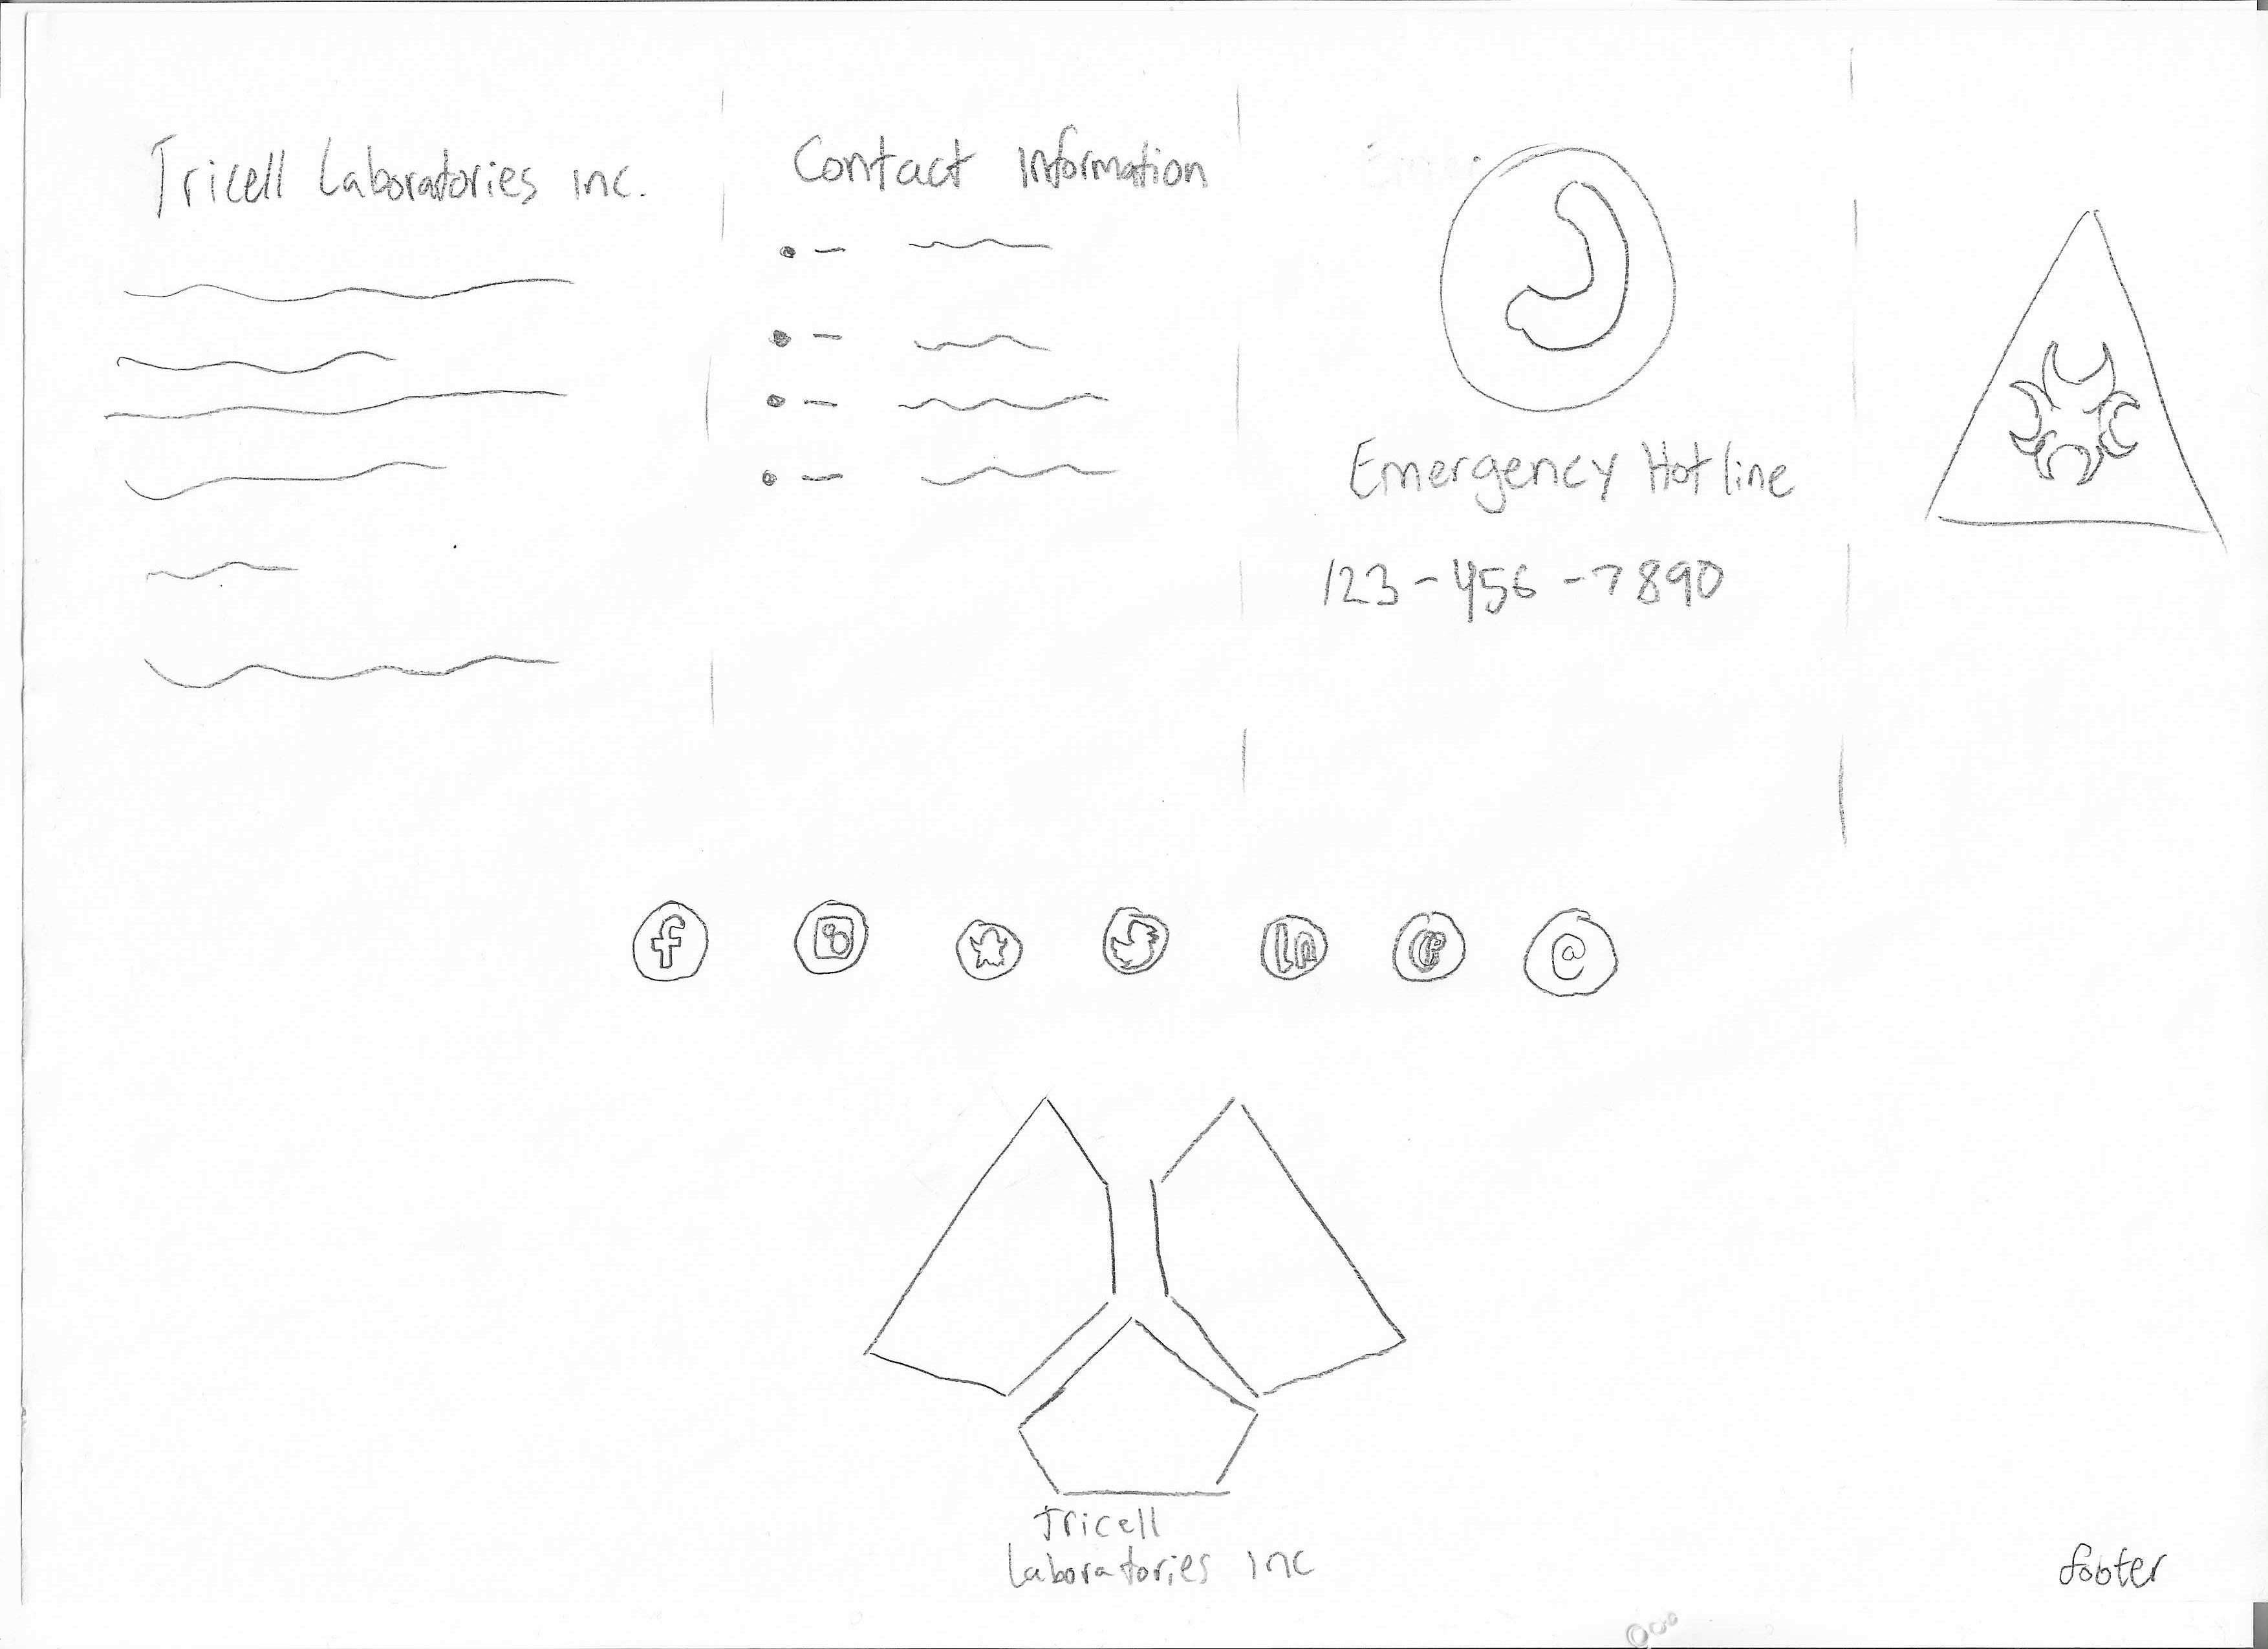 Tricell Laboratories inc.
Contact Information
Emergency Hotline
123-456-7890
f
in
@
Tricell
Laboratories Inc
footer